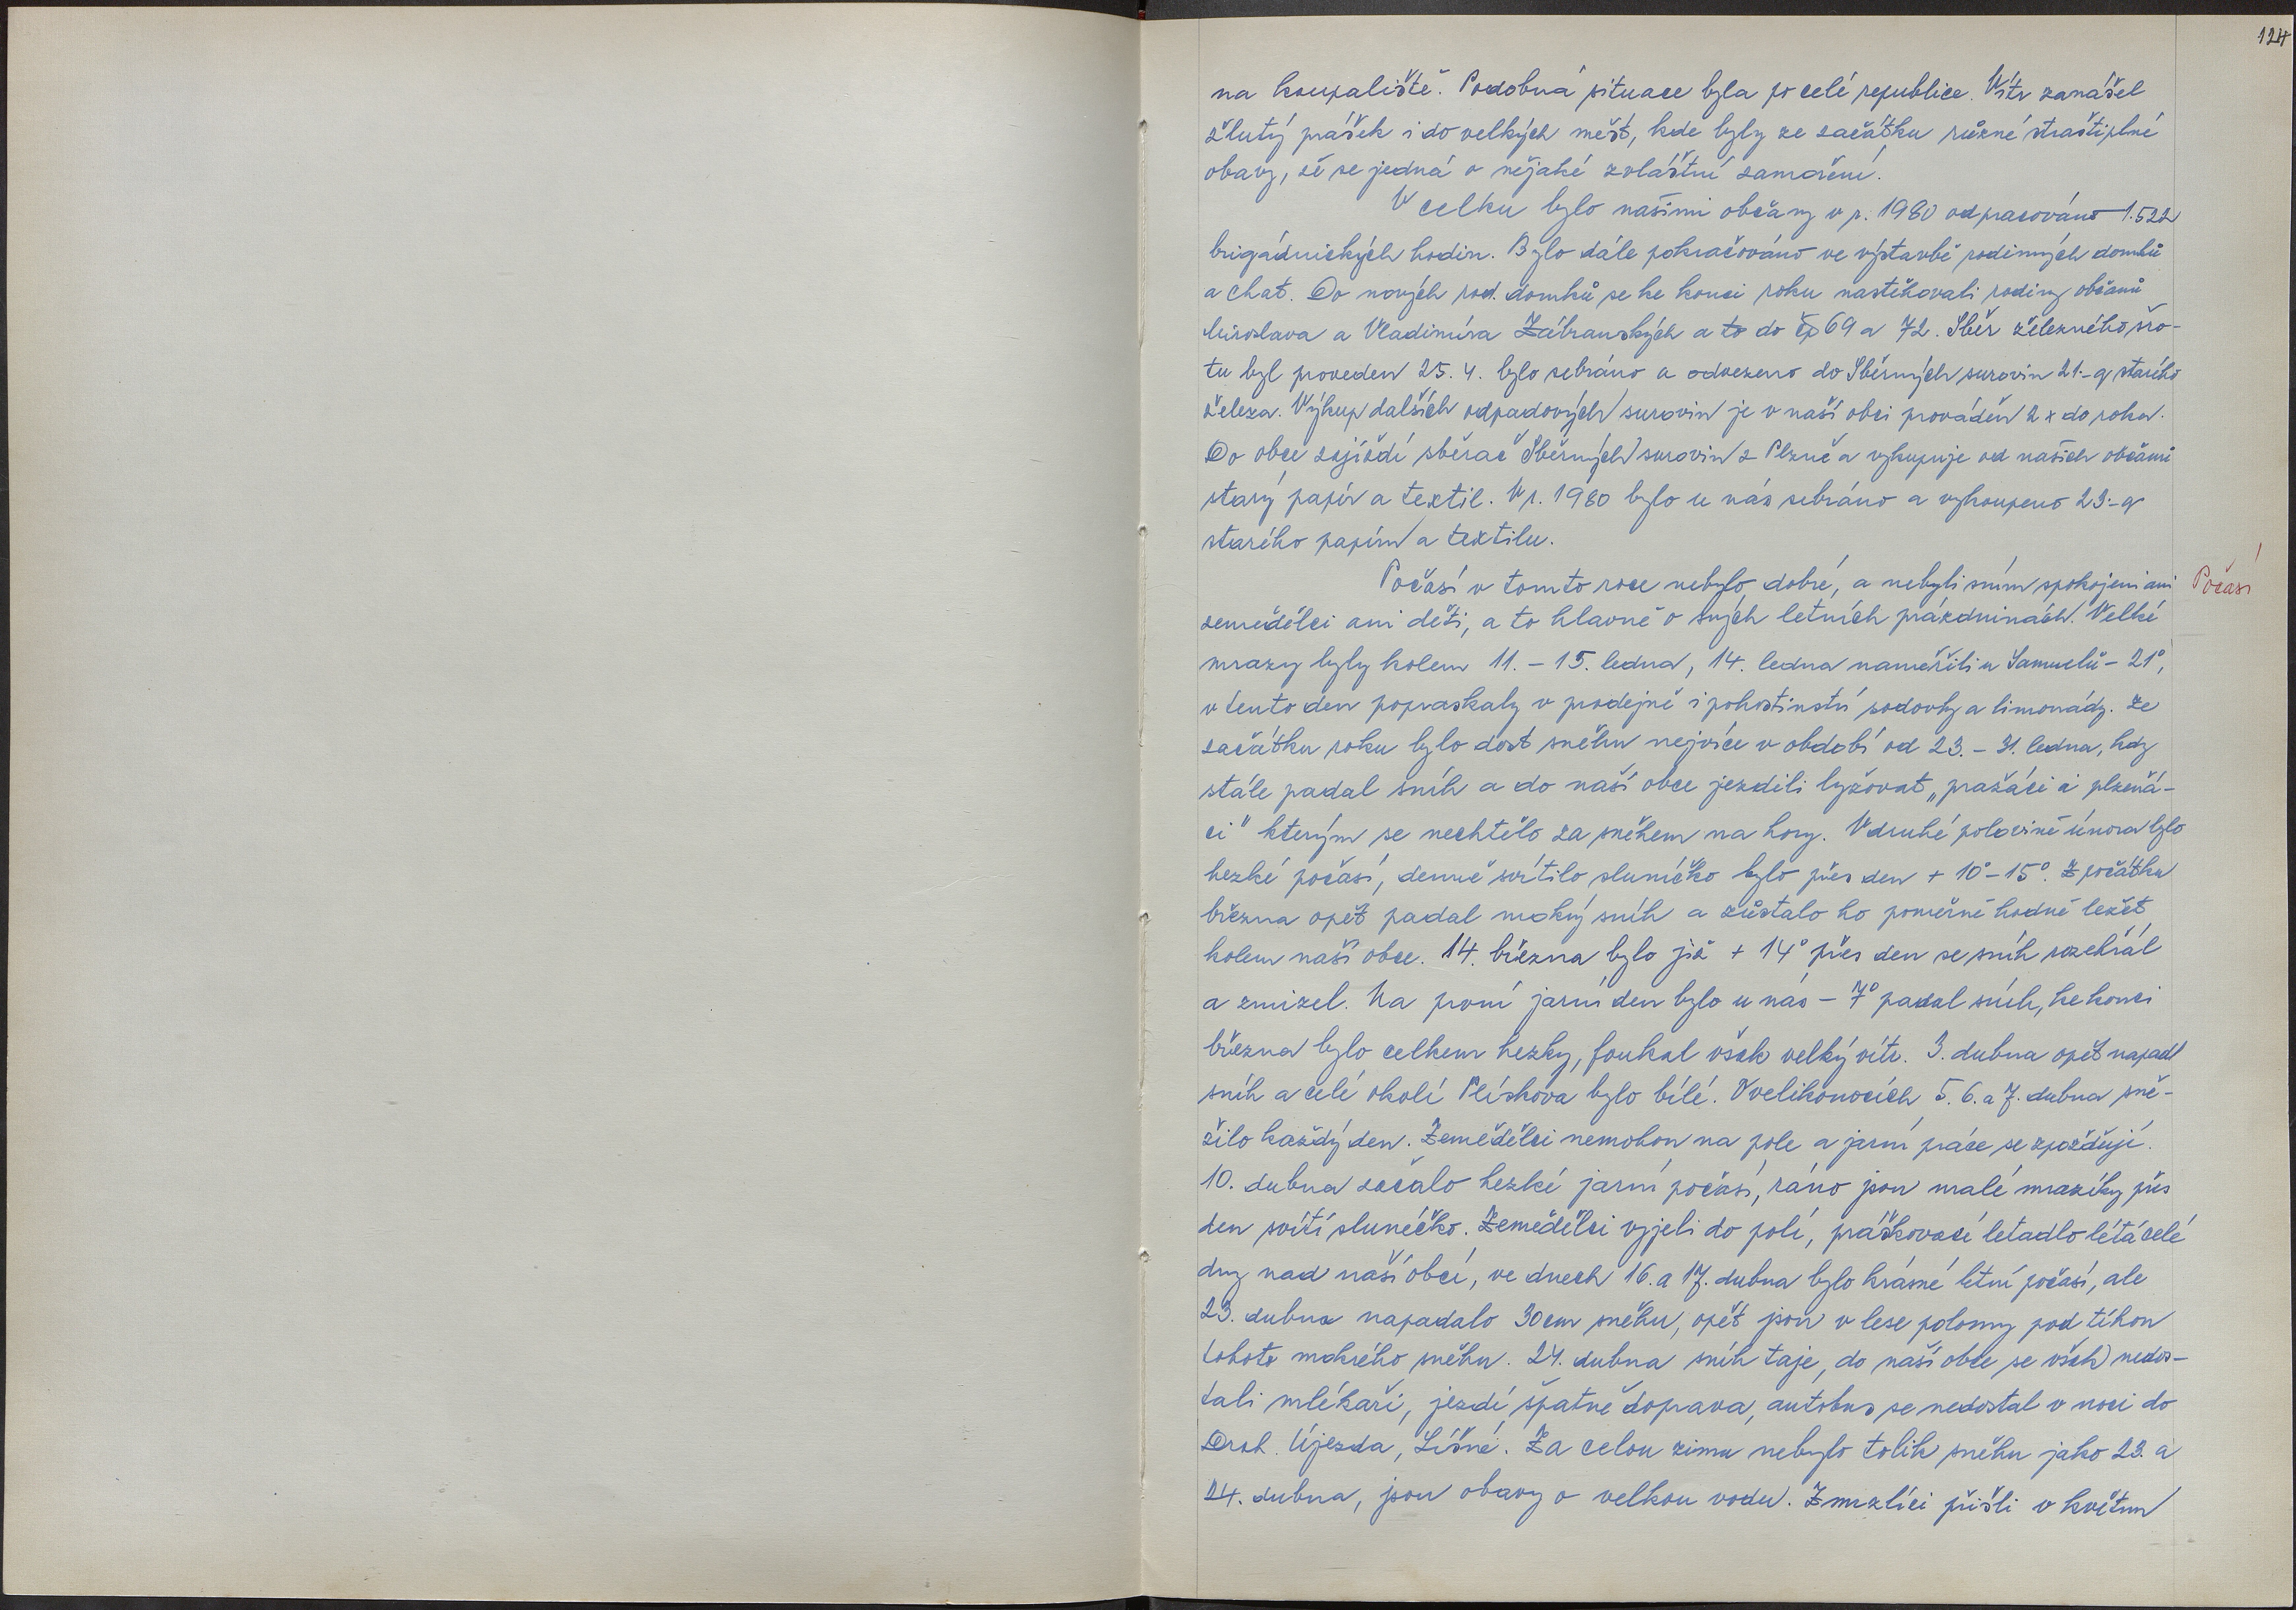 124
na koupaliště. Podobná situace byla po celé republice. Vítr zanášel
žlutý prášek i do velkých měst, kde byly ze začátku různé strastiplné
obavy, že se jedná o nějaké zvláštní zamoření.
V celku bylo našimi občany v r. 1980 odpracováno 1.522
brigádnických hodin. Bylo dále pokračováno ve výstavbě rodinných domků
a chat. Do nových rod. domků se ke konci roku nastěhovali rodiny občanů
Miroslava a Vladimíra Zábranských a to do čp 69 a 72. Sběr železného šro-
tu byl proveden 25. 4. bylo sebráno a odvezeno do Sběrných surovin 21.-q starého
železa. Výkup dalších odpadových surovin je v naší obci prováděn 2x do roka.
Do obce zajíždí sběrač Sběrných surovin z Plzně a vykupuje od našich občanů
starý papír a textil. V r. 1980 bylo u nás sebráno a vykoupeno 23.-q
starého papíru a textilu.
Počasí v tomto roce nebylo dobré, a nebyli sním spokojeni ani
Počasí
zemědělci ani děti, a to hlavně o svých letních prázdninách. Velké
mrazy byly kolem 11. - 15. ledna, 14. ledna naměřili u Samuelů - 21°,
v tento den popraskaly v prodejně i pohostinství sodovky a limonády. Ze
začátku roku bylo dost sněhu nejvíce v období od 23. - 31. ledna, kdy
stále padal sníh a do naší obce jezdili lyžovat „pražáci i plzeňá-
ci" kterým se nechtělo za sněhem na hory. V druhé polovině února bylo
hezké počasí, denně svítilo sluníčko bylo přes den + 10°-15°. Z počátku
března opět padal mokrý sníh a zůstalo ho poměrně hodně ležet
kolem naší obce. 14. března bylo již + 14° přes den se sníh rozehřál
a zmizel. Na první jarní den bylo u nás - 7° padal sníh, ke konci
března bylo celkem hezky, foukal však velký vítr. 3. dubna opět napadl
sníh a celé okolí Plískova bylo bílé. O velikonocích 5. 6. a 7. dubna sně-
žilo každý den. Zemědělci nemohou na pole a jarní práce se zpožďují.
10. dubna začalo hezké jarní počasí, ráno jsou malé mrazíky přes
den svítí sluníčko. Zemědělci vyjeli do polí, práškovací letadlo létá celé
dny nad naší obcí, ve dnech 16. a 17. dubna bylo krásné letní počasí, ale
23. dubna napadalo 30cm sněhu, opět jsou v lese polomy pod tíhou
tohoto mokrého sněhu. 24. dubna sníh taje, do naší obce se však nedos-
tali mlékaři, jezdí špatně doprava, autobus se nedostal v noci do
Droh. Újezda, Líšné. Za celou zimu nebylo tolik sněhu jako 23. a
24. dubna, jsou obavy o velkou vodu. Zmrzlíci přišli v květnu